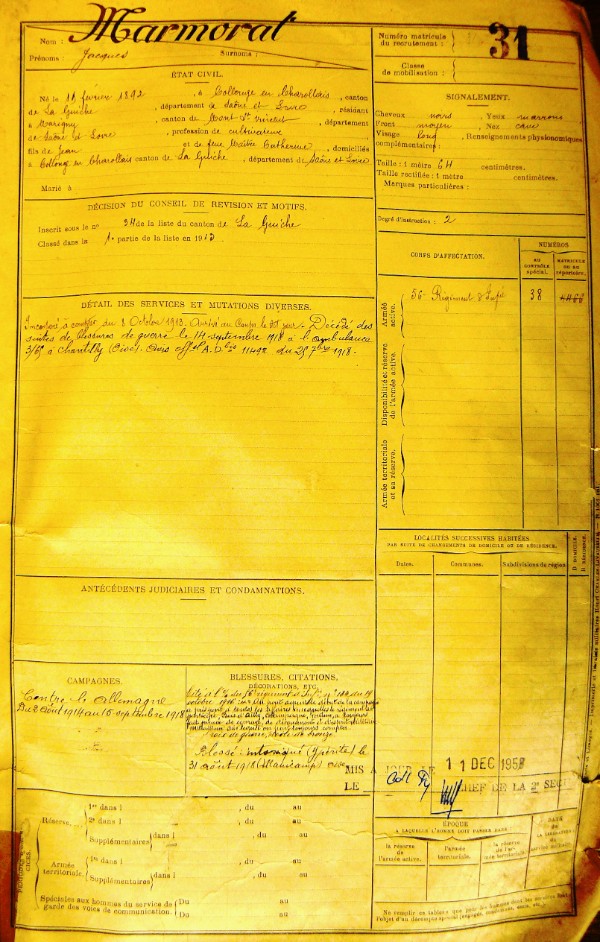 Nom : Marmorat
Prénoms : Jacques Surnoms :
ÉTAT CIVIL.
Né le 11 février 1892, à Collonge en Charollais, canton
de La Guiche, département de Saône et Loire, résidant
à Marigny, canton de Mont St Vincent, département
de Saône et Loire, profession de cultivateur
fils de Jean et de feue Catherine, domiciliés
à Collonge en Charollais canton de La Guiche, département de Saône et Loire
Marié à
DÉCISION DU CONSEIL DE REVISION ET MOTIFS.
Inscrit sous le no 34 de la liste du canton de La Guiche
Classé dans la 1e partie de la liste en 1913
DÉTAIL DES SERVICES ET MUTATIONS DIVERSES.
Incorporé à compter du 8 Octobre 1913. Arrivé au Corps le dit jour. Décédé des
suites de blessures de guerre le 14 septembre 1918 à l'ambulance
3/65 à Chantilly (Oise). Avis offel A. D. 11492 du 25 7bre 1918.
ANTÉCÉDENTS JUDICIAIRES ET CONDAMNATIONS.
CAMPAGNES.
Contre le Allemagne
Du 2 août 1914 au 15 septembre 1918
BLESSURES, CITATIONS,
DÉCORATIONS, ETC.
Blessé intoxiqué (ypérite) le
31 août 1918
Numéro matricule
du recrutement :
31
Classe
de mobilisation :
SIGNALEMENT.
Cheveux noirs, Yeux marrons
Front moyen, Nez cave
Visage long, Renseignements physionomiques
complémentaires :
Taille : 1 mètre 64 centimètres.
Taille rectifiée : 1 mètre centimètres.
Marques particulières :
Degré d'instruction : 2
CORPS D'AFFECTATION.
NUMÉROS
AU CONTRÔLE spécial.
MATRICULE OU AU répertoire.
Armée active.
56e Régiment d'Infie 38
Disponibilité et réserve de l'armée active.
Armée territoriale et sa réserve.
LOCALITÉS SUCCESSIVES HABITÉES
PAR SUITE DE CHANGEMENTS DE DOMICILE OU DE RÉSIDENCE.
Dates. Communes. Subdivisions de région.
D. DOMICILE.
R. RÉSIDENCE.
MIS A JOUR LE 11 DEC 1958
LE CHEF DE LA 2e SECT
Réserve. 1re dans l, du au
2e dans l, du au
Supplémentaires dans l, du au
Armée territoriale. 1re dans l, du au
Supplémentaires dans l, du au
Spéciales aux hommes du service de
garde des voies de communication. Du au
Du au
ÉPOQUE
À LAQUELLE L'HOMME DOIT PASSER DANS
la réserve de l'armée active.
l'armée territoriale.
la réserve de l'armée territoriale.